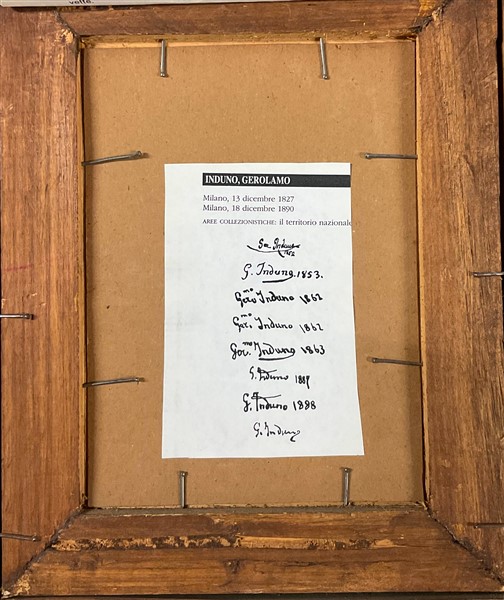 volte.
INDUNO, GEROLAMO
Milano, 13 dicembre 1827
Milano, 18 dicembre 1890
AREE COLLEZIONISTICHE: il territorio nazionale
Ger. Induno
1852
G. Induno. 1853.
Germo Induno 1862
Germo Induno 1862
Germo Induno 1863
G. Induno 1887
G. Induno 1888
G. Induno